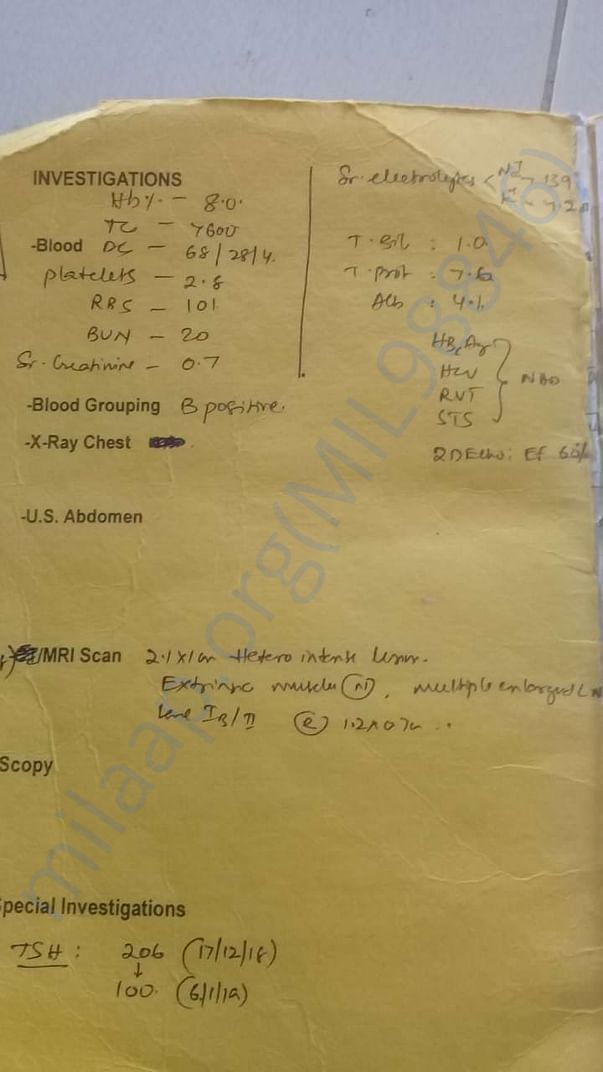 INVESTIGATIONS
Hb% - 8.0
TC - 7600
-Blood DC - 68/28/4
platelets - 2.8
RBS - 101
BUN - 20
Sr. Creatinine - 0.7
-Blood Grouping B positive.
-X-Ray Chest
-U.S. Abdomen
/MRI Scan 2.1x1cm Hetero intense lesion.
Extrinsic muscles (N), multiple enlarged LN
IB/II 1.2x0.7cm
Scopy
Special Investigations
TSH : 206 (17/12/18)
↓
100. (6/1/19)
Sr. electrolytes < Na+ - 139
K+ - 4.2
T. Bil : 1.0
T. prot : 7.6
Alb : 4.1
HBsAg
HCV
RVT
STS
2D Echo: EF 60%
milaap.org(MIL98846)